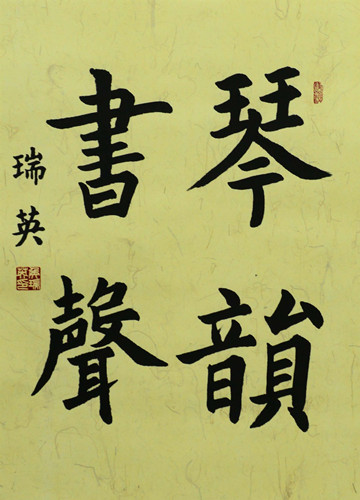 琴韻
書聲
瑞英